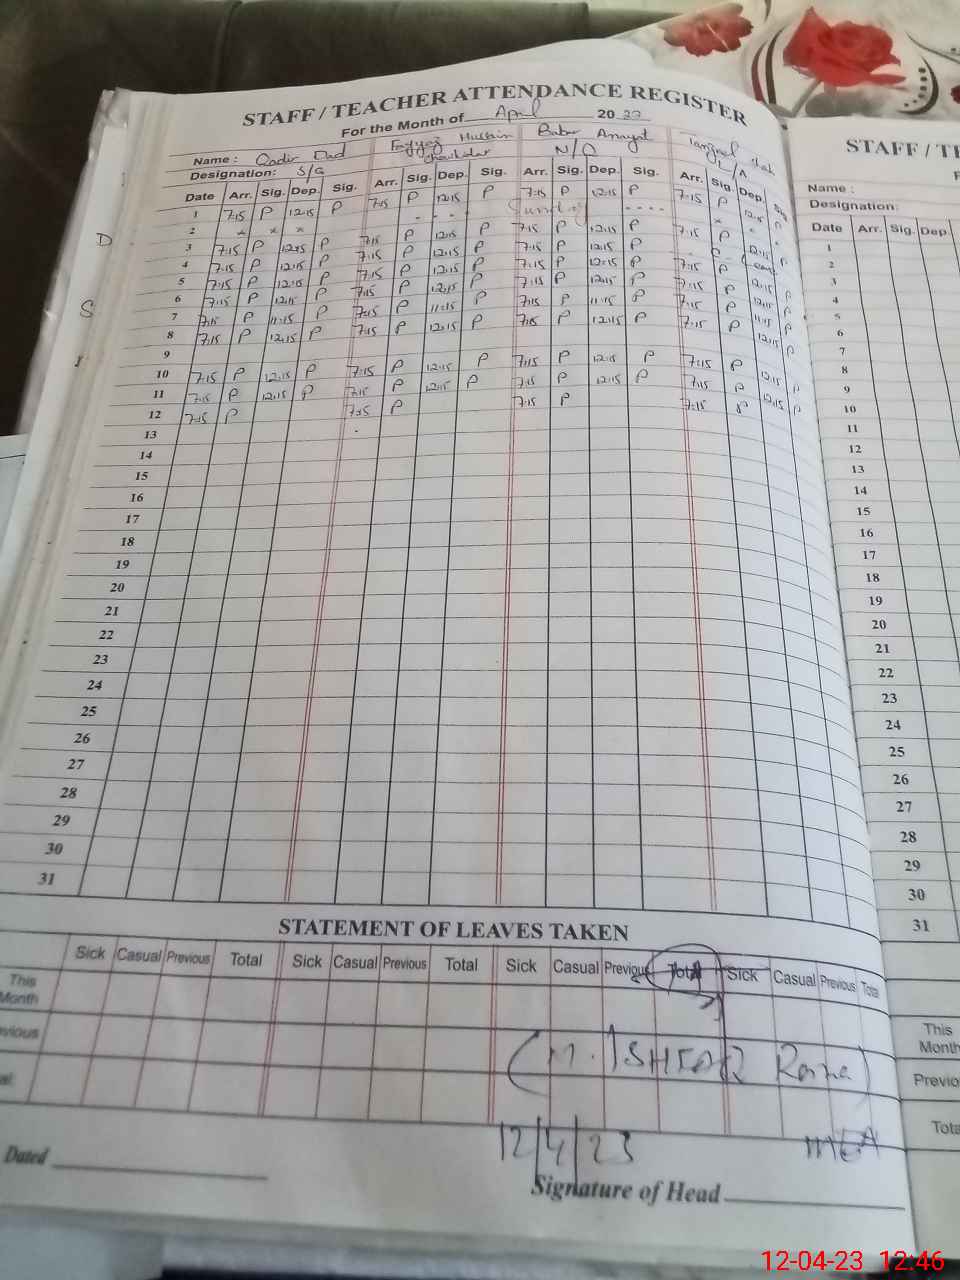 STAFF / TEACHER ATTENDANCE REGISTER
For the Month of April 20 23
Name : Qadir Dad Fayyaz Hussain Babar Anayat Tanzeel Shah
Designation: S/G Chowkidar N/Q L/A
Date Arr. Sig. Dep. Sig. Arr. Sig. Dep. Sig. Arr. Sig. Dep. Sig. Arr. Sig. Dep. Sig.
1 7:15 P 12:15 P 7:15 P 12:15 P 7:15 P 12:15 P 7:15 P 12:15 P
2 × × × - - - Sunday - - - - × - -
3 7:15 P 12:15 P 7:15 P 12:15 P 7:15 P 12:15 P 7:15 P 12:15 P
4 7:15 P 12:15 P 7:15 P 12:15 P 7:15 P 12:15 P
5 7:15 P 12:15 P 7:15 P 12:15 P 7:15 P 12:15 P 7:15 P 12:15 P
6 7:15 P 12:15 P 7:15 P 12:15 P 7:15 P 12:15 P 7:15 P 12:15 P
7 7:15 P 11:15 P 7:15 P 11:15 P 7:15 P 11:15 P 7:15 P 11:15 P
8 7:15 P 12:15 P 7:15 P 12:15 P 7:15 P 12:15 P 7:15 P 12:15 P
9
10 7:15 P 12:15 P 7:15 P 12:15 P 7:15 P 12:15 P 7:15 P 12:15 P
11 7:15 P 12:15 P 7:15 P 12:15 P 7:15 P 12:15 P 7:15 P 12:15 P
12 7:15 P 7:15 P 7:15 P 7:15 P
13
14
15
16
17
18
19
20
21
22
23
24
25
26
27
28
29
30
31
STATEMENT OF LEAVES TAKEN
Sick Casual Previous Total Sick Casual Previous Total Sick Casual Previous Total Sick Casual Previous Total
This
Month
(M. ISHTAQ Rana)
12/4/23 MEA
Dated
Signature of Head
D
S
STAFF / TE
F
Name :
Designation:
Date Arr. Sig. Dep
1
2
3
4
5
6
7
8
9
10
11
12
13
14
15
16
17
18
19
20
21
22
23
24
25
26
27
28
29
30
31
This
Month
Previo
Tota
12-04-23 12:46